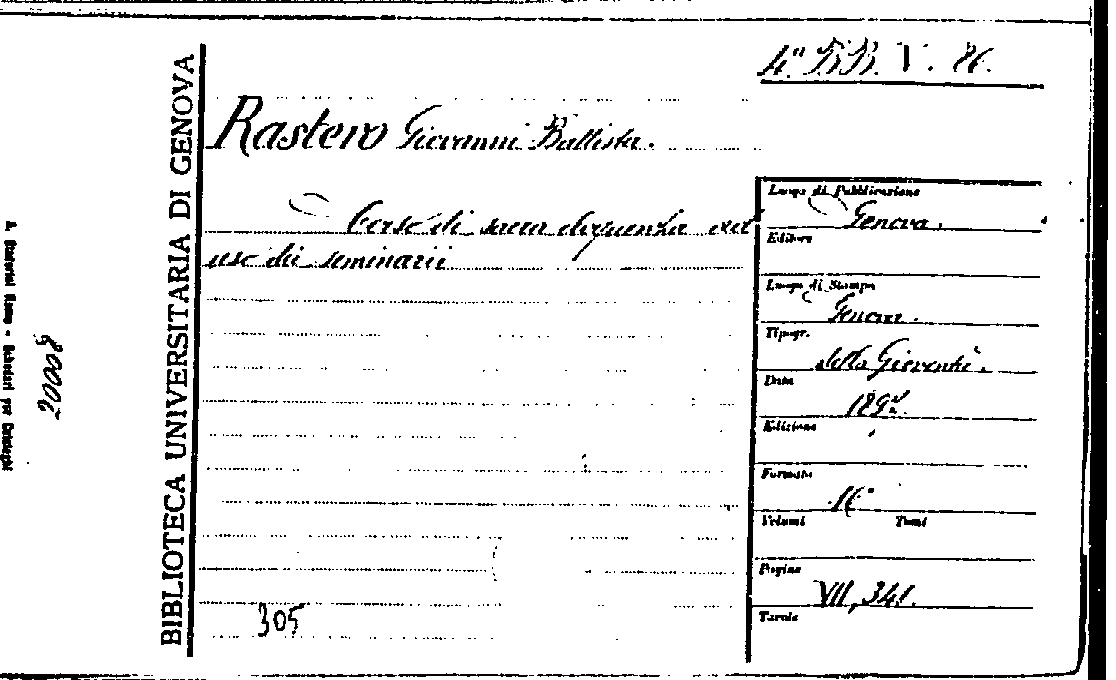 4ª BB. V. 86.
Rastero Giovanni Battista.
Corso di sacra eloquenza ad
uso dei seminarii
305
BIBLIOTECA UNIVERSITARIA DI GENOVA
20008
Luogo di Pubblicazione
Genova.
Editore
Luogo di Stampa
Genova.
Tipogr.
della Gioventù.
Data
Edizione
Formato
16°
Volumi Tomi
Pagine
VII, 341.
Tavole